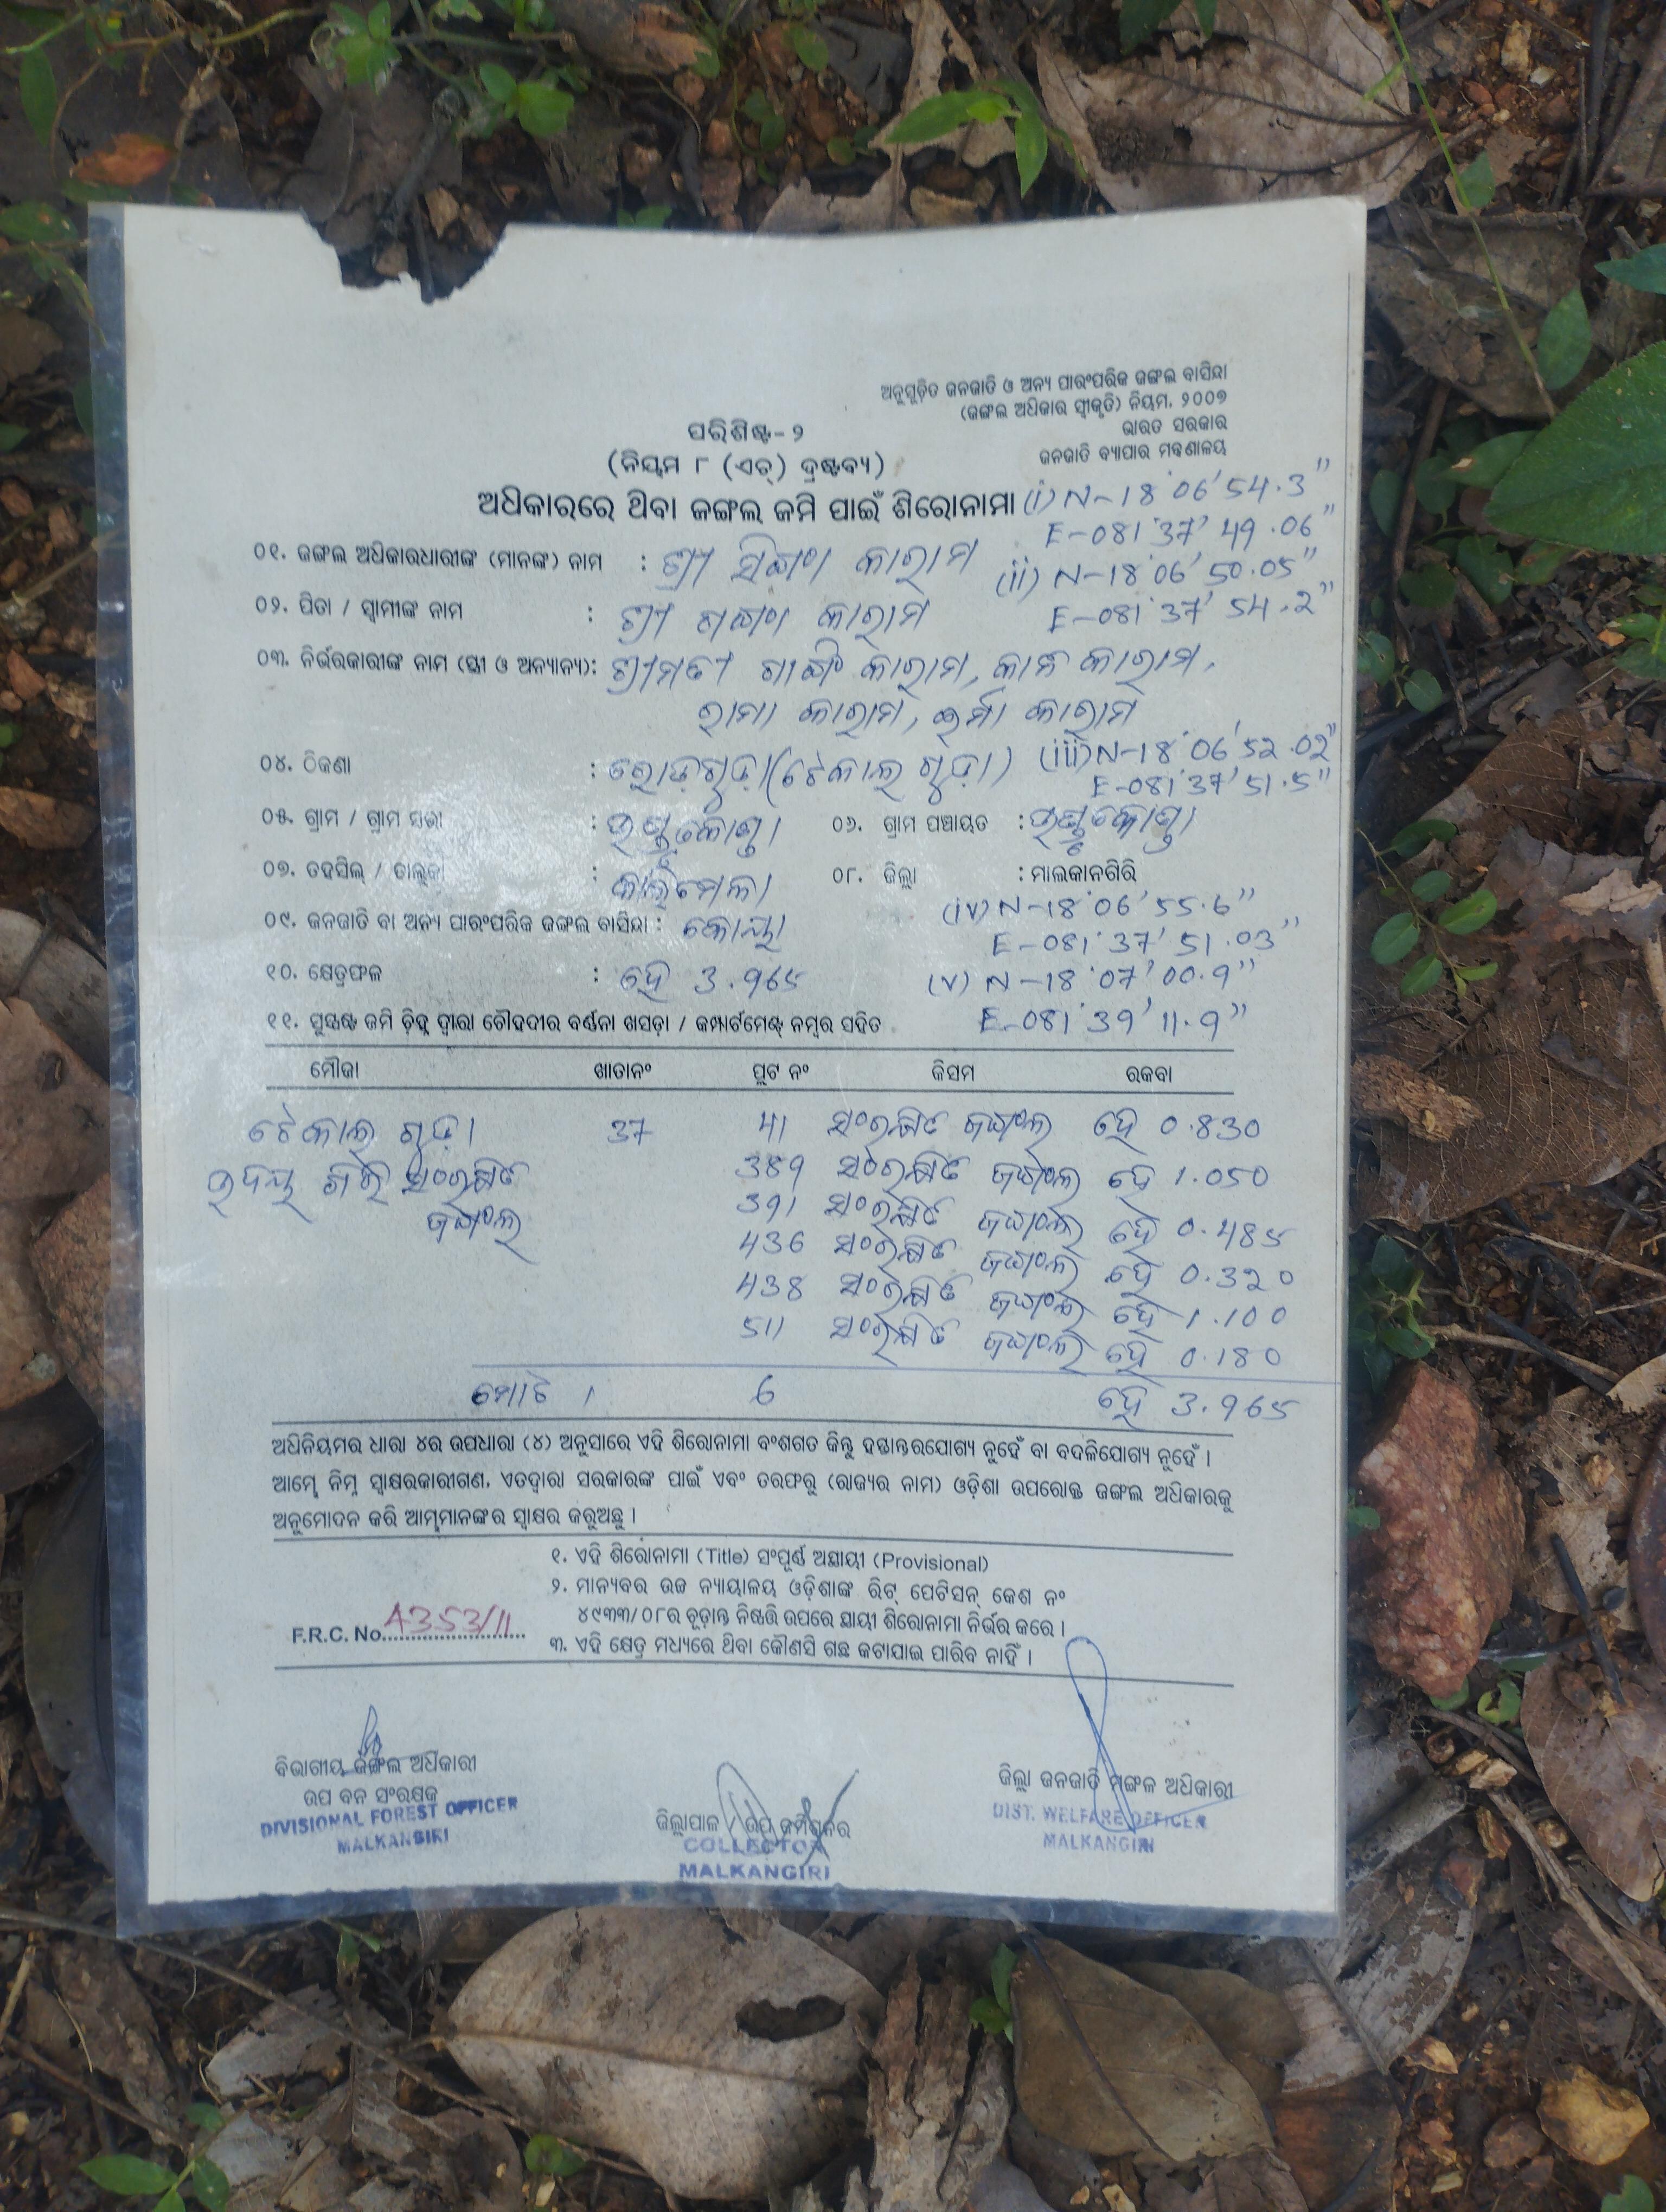 ଅନୁସୂଚିତ ଜନଜାତି ଓ ଅନ୍ୟ ପାରଂପରିକ ଜଙ୍ଗଲ ବାସିନ୍ଦା
(ଜଙ୍ଗଲ ଅଧିକାର ସ୍ୱୀକୃତି) ନିୟମ, ୨୦୦୭
ଭାରତ ସରକାର
ଜନଜାତି ବ୍ୟାପାର ମନ୍ତ୍ରଣାଳୟ
ପରିଶିଷ୍ଟ-୨
(ନିୟମ ୮ (ଏଚ୍) ଦ୍ରଷ୍ଟବ୍ୟ)
ଅଧିକାରରେ ଥିବା ଜଙ୍ଗଲ ଜମି ପାଇଁ ଶିରୋନାମା
(i) N-18°06'54.3"
E-081°37'49.06"
୦୧. ଜଙ୍ଗଲ ଅଧିକାରଧାରୀଙ୍କ (ମାନଙ୍କ) ନାମ : ଶ୍ରୀ କାରାମ
(ii) N-18°06'50.05"
E-081°37'54.2"
୦୨. ପିତା / ସ୍ୱାମୀଙ୍କ ନାମ : ଶ୍ରୀ କାରାମ
୦୩. ନିର୍ଭରକାରୀଙ୍କ ନାମ (ସ୍ତ୍ରୀ ଓ ଅନ୍ୟାନ୍ୟ): ଶ୍ରୀମତୀ କାରାମ, କାରାମ,
ରାମା କାରାମ, କାରାମ
(iii) N-18°06'52.02"
E-081°37'51.5"
୦୪. ଠିକଣା : ରୋଡ଼ଗୁଡ଼ା (ଟେକାଲ ଗୁଡ଼ା)
୦୫. ଗ୍ରାମ / ଗ୍ରାମ ସଭା : ୦୬. ଗ୍ରାମ ପଞ୍ଚାୟତ :
୦୭. ତହସିଲ୍ / ତାଲୁକା : କାଲିମେଳା ୦୮. ଜିଲ୍ଲା : ମାଲକାନଗିରି
(iv) N-18°06'55.6"
E-081°37'51.03"
୦୯. ଜନଜାତି ବା ଅନ୍ୟ ପାରଂପରିକ ଜଙ୍ଗଲ ବାସିନ୍ଦା : କୋୟା
୧୦. କ୍ଷେତ୍ରଫଳ : ହେ 3.965
(v) N-18°07'00.9"
E-081°39'11.9"
୧୧. ସୁସ୍ପଷ୍ଟ ଜମି ଚିହ୍ନ ଦ୍ୱାରା ଚୌହଦୀର ବର୍ଣ୍ଣନା ଖସଡ଼ା / କମ୍ପାର୍ଟମେଣ୍ଟ ନମ୍ବର ସହିତ
ମୌଜା ଖାତାନଂ ପ୍ଲଟ ନଂ କିସମ ରକବା
ଟେକାଲ ଗୁଡ଼ା 37 41 ସଂରକ୍ଷିତ ଜଙ୍ଗଲ ହେ 0.830
ଉଦୟ ଗିରି ସଂରକ୍ଷିତ 389 ସଂରକ୍ଷିତ ଜଙ୍ଗଲ ହେ 1.050
ଜଙ୍ଗଲ 391 ସଂରକ୍ଷିତ ଜଙ୍ଗଲ ହେ 0.485
436 ସଂରକ୍ଷିତ ଜଙ୍ଗଲ ହେ 0.320
438 ସଂରକ୍ଷିତ ଜଙ୍ଗଲ ହେ 1.100
511 ସଂରକ୍ଷିତ ଜଙ୍ଗଲ ହେ 0.180
ମୋଟ 1 6 ହେ 3.965
ଅଧିନିୟମର ଧାରା ୪ର ଉପଧାରା (୪) ଅନୁସାରେ ଏହି ଶିରୋନାମା ବଂଶଗତ କିନ୍ତୁ ହସ୍ତାନ୍ତରଯୋଗ୍ୟ ନୁହେଁ ବା ବଦଳିଯୋଗ୍ୟ ନୁହେଁ ।
ଆମ୍ଭେ ନିମ୍ନ ସ୍ୱାକ୍ଷରକାରୀଗଣ, ଏତଦ୍ୱାରା ସରକାରଙ୍କ ପାଇଁ ଏବଂ ତରଫରୁ (ରାଜ୍ୟର ନାମ) ଓଡ଼ିଶା ଉପରୋକ୍ତ ଜଙ୍ଗଲ ଅଧିକାରକୁ
ଅନୁମୋଦନ କରି ଆମ୍ଭମାନଙ୍କର ସ୍ୱାକ୍ଷର କରୁଅଛୁ ।
୧. ଏହି ଶିରୋନାମା (Title) ସଂପୂର୍ଣ୍ଣ ଅସ୍ଥାୟୀ (Provisional)
୨. ମାନ୍ୟବର ଉଚ୍ଚ ନ୍ୟାୟାଳୟ ଓଡ଼ିଶାଙ୍କ ରିଟ୍ ପେଟିସନ୍ କେଶ ନଂ
୪୯୩୩/୦୮ର ଚୂଡ଼ାନ୍ତ ନିଷ୍ପତ୍ତି ଉପରେ ସ୍ଥାୟୀ ଶିରୋନାମା ନିର୍ଭର କରେ ।
F.R.C. No. 4353/11
୩. ଏହି କ୍ଷେତ୍ର ମଧ୍ୟରେ ଥିବା କୌଣସି ଗଛ କଟାଯାଇ ପାରିବ ନାହିଁ ।
ବିଭାଗୀୟ ଜଙ୍ଗଲ ଅଧିକାରୀ
ଉପ ବନ ସଂରକ୍ଷକ
DIVISIONAL FOREST OFFICER
MALKANGIRI
ଜିଲ୍ଲାପାଳ / ଉପ କମିଶନର
COLLECTOR
MALKANGIRI
ଜିଲ୍ଲା ଜନଜାତି ମଙ୍ଗଳ ଅଧିକାରୀ
DIST. WELFARE OFFICER
MALKANGIRI